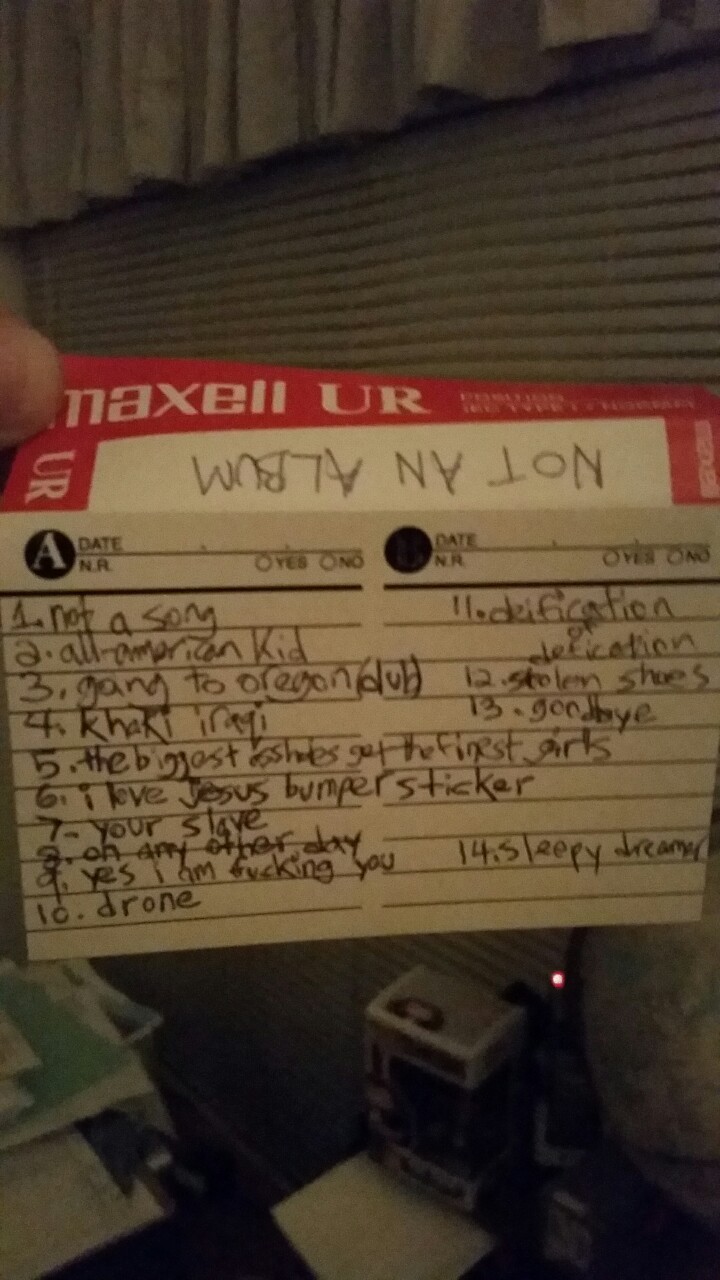 maxell UR POSITION IEC TYPE I • NORMAL
UR NOT AN ALBUM maxell
A DATE
N.R. YES NO
DATE
N.R. YES NO
1. not a song
2. all-american kid
3. going to oregon (dub)
4. khaki iraqi
5. the biggest assholes get the finest girls
6. i love jesus bumper sticker
7- your slave
8. on any other day
9. yes i am fucking you
10. drone
11. deification
of
defication
12. stolen shoes
13. goodbye
14. sleepy dreamer